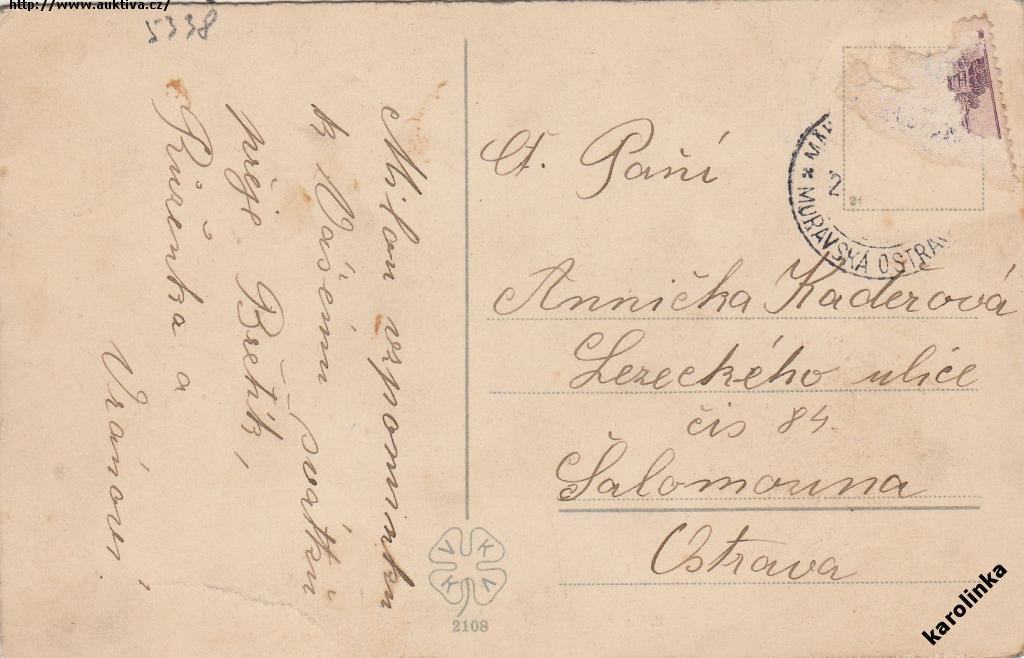 http://www.auktiva.cz/
5338
Milou vzpomínku
k Vášemu svátku
přeje Břetík,
Růženka a
Vránovi,
Ct. Paní
Annička Kaderová
Lezeckého ulice
čís 84.
Šalomouna
Ostrava
* MORAVSKÁ OSTRAV
2
21
V K
K V
2108
karolinka